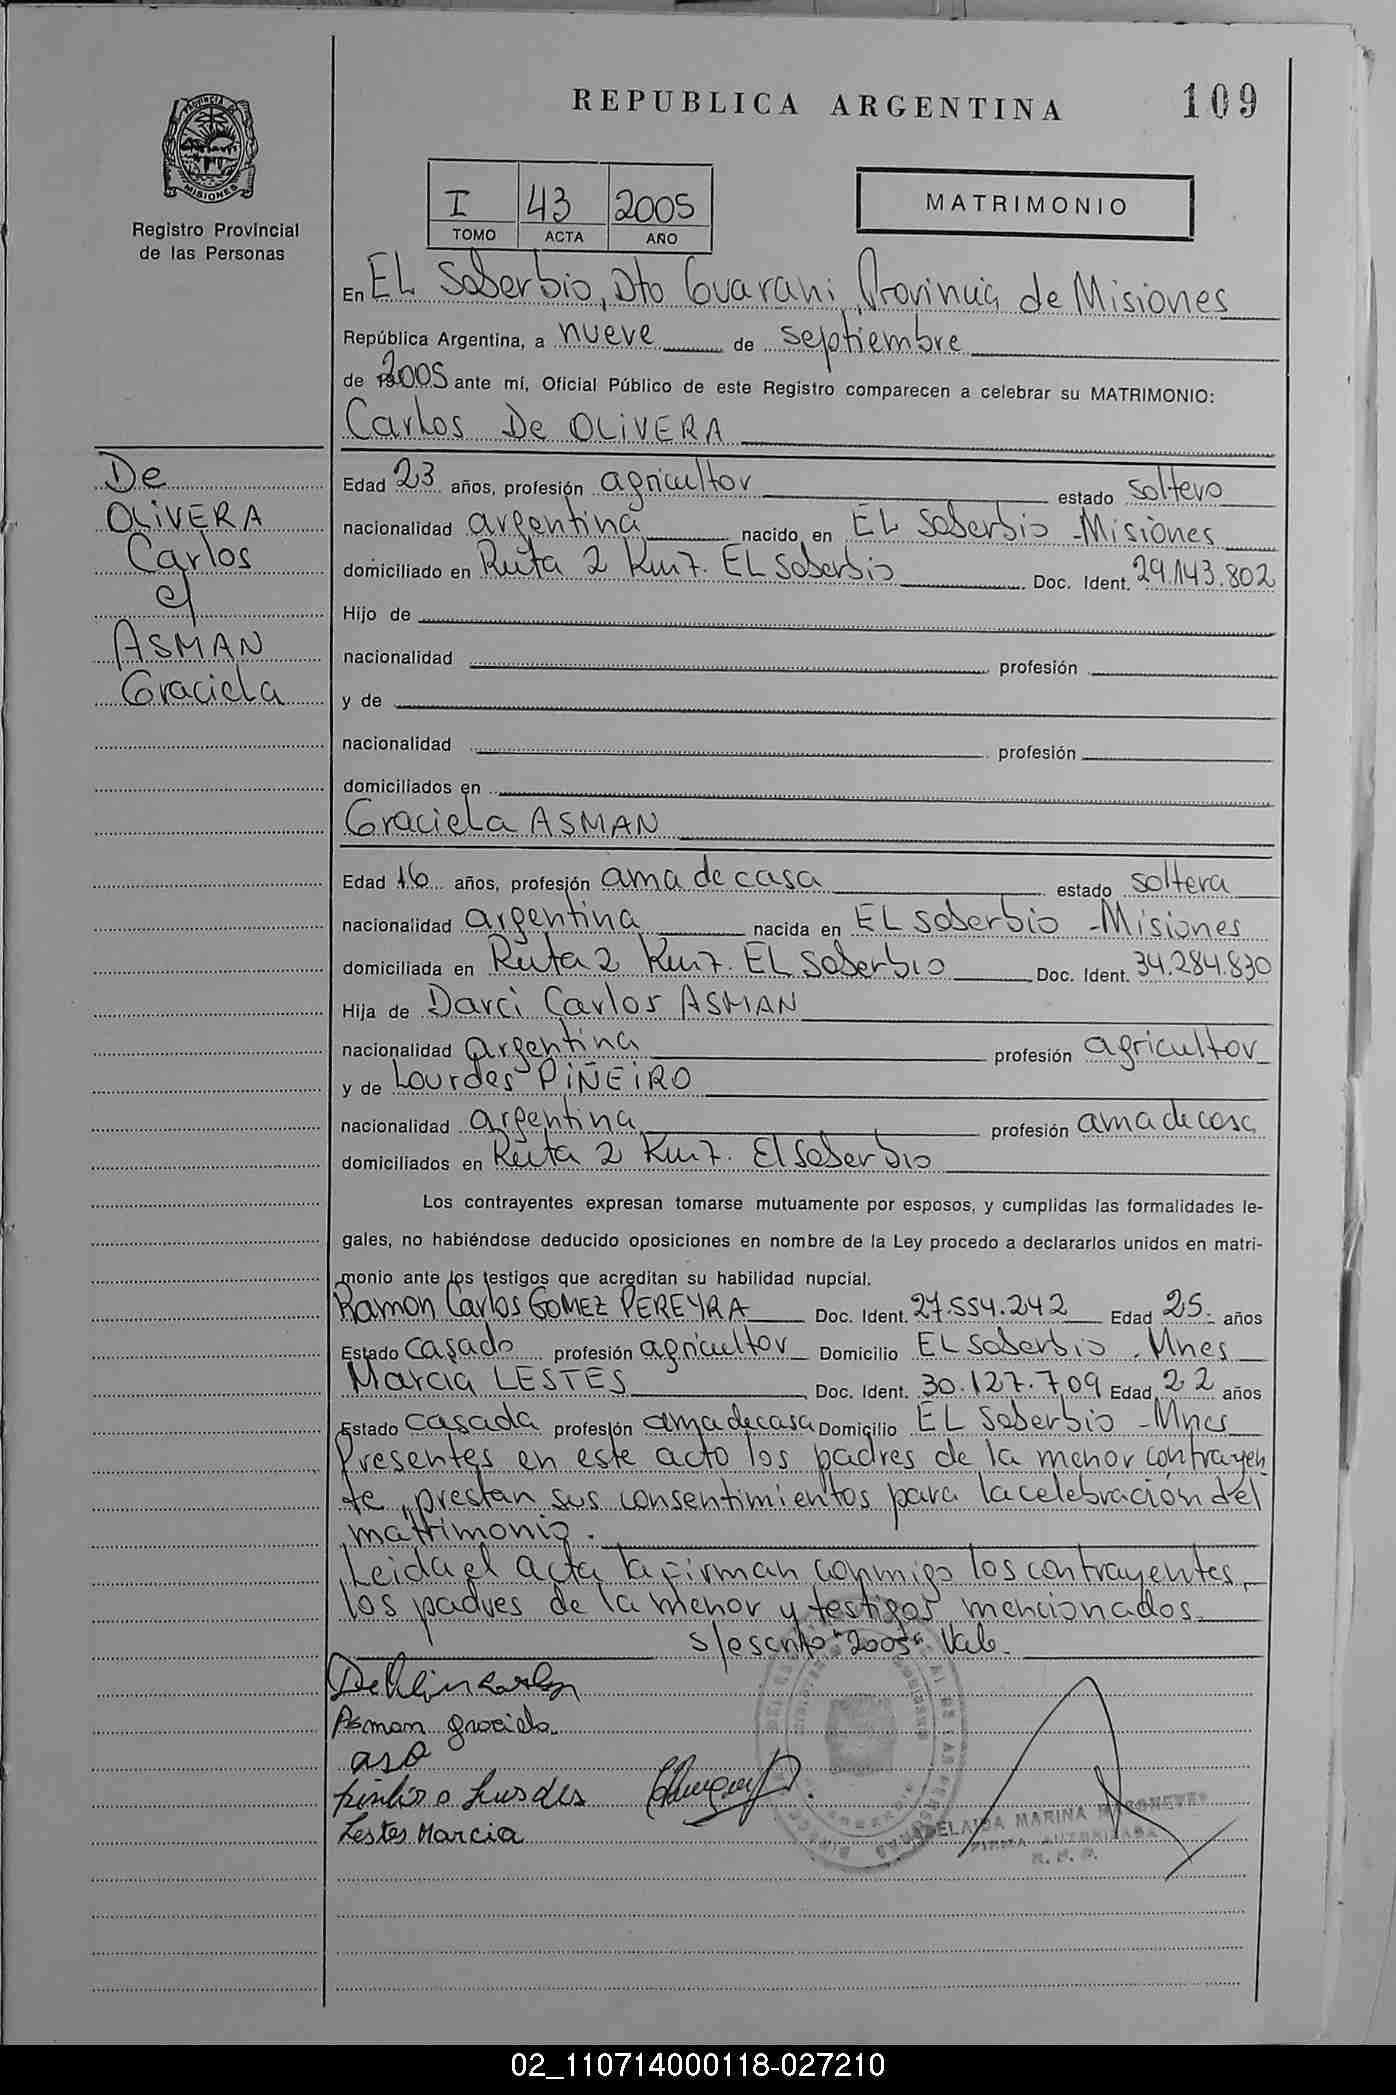 REPUBLICA ARGENTINA
109
PROVINCIA DE
MISIONES
Registro Provincial
de las Personas
I 43 2005
TOMO ACTA AÑO
MATRIMONIO
En EL Soberbio, Dto Guarani, Provincia de Misiones
República Argentina, a nueve de septiembre
de 2005 ante mí, Oficial Público de este Registro comparecen a celebrar su MATRIMONIO:
Carlos De OLiVERA
De
OLiVERA
Carlos
c/
ASMAN
Graciela
Edad 23 años, profesión agricultor estado soltero
nacionalidad argentina nacido en EL Soberbio - Misiones
domiciliado en Ruta 2 Km 7. EL Soberbio Doc. Ident. 29.143.802
Hijo de
nacionalidad profesión
y de
nacionalidad profesión
domiciliados en
Graciela ASMAN
Edad 16 años, profesión ama de casa estado soltera
nacionalidad argentina nacida en EL Soberbio - Misiones
domiciliada en Ruta 2 Km 7. EL Soberbio Doc. Ident. 34.284.830
Hija de Darci Carlos ASMAN
nacionalidad argentina profesión agricultor
y de Lourdes PIÑEiRO
nacionalidad argentina profesión ama de casa
domiciliados en Ruta 2 Km 7. El Soberbio
Los contrayentes expresan tomarse mutuamente por esposos, y cumplidas las formalidades le-
gales, no habiéndose deducido oposiciones en nombre de la Ley procedo a declararlos unidos en matri-
monio ante los testigos que acreditan su habilidad nupcial.
Ramon Carlos GOMEZ PEREYRA Doc. Ident. 27.554.242 Edad 25 años
Estado casado profesión agricultor Domicilio EL Soberbio - Mnes
Marcia LESTES Doc. Ident. 30.127.709 Edad 22 años
Estado casada profesión ama de casa Domicilio EL Soberbio - Mnes
Presentes en este acto los padres de la menor contrayen
te, prestan sus consentimientos para la celebración del
matrimonio.
Leida el acta la firman conmigo los contrayentes,
los padres de la menor y testigos mencionados.
s/escrito "2005" Vale.
Asman graciela
Lestes Marcia
ADELAIDA MARINA
FIRMA AUTORIZADA
02_110714000118-027210